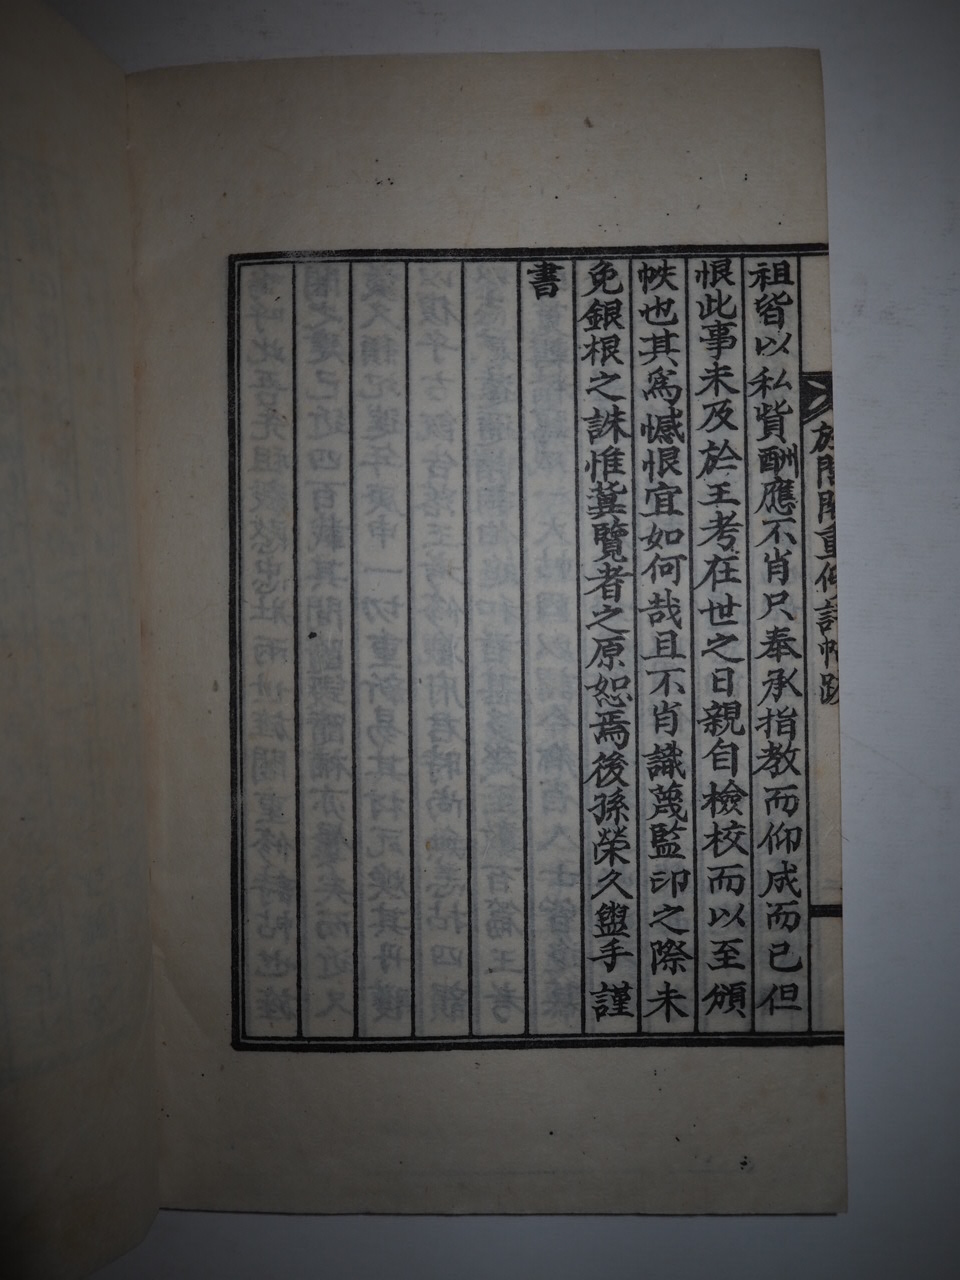 旌閭閣重修詩帖跋
祖皆以私貲酬應不肖只奉承指教而仰成而已但
恨此事未及於王考在世之日親自檢校而以至頒
帙也其爲憾恨宜如何哉且不肖識蔑監印之際未
免銀根之誅惟冀覽者之原恕焉後孫榮久盥手謹
書